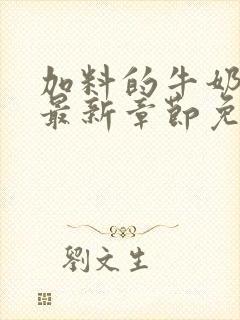 加料的牛奶
最新章節免
劉文生